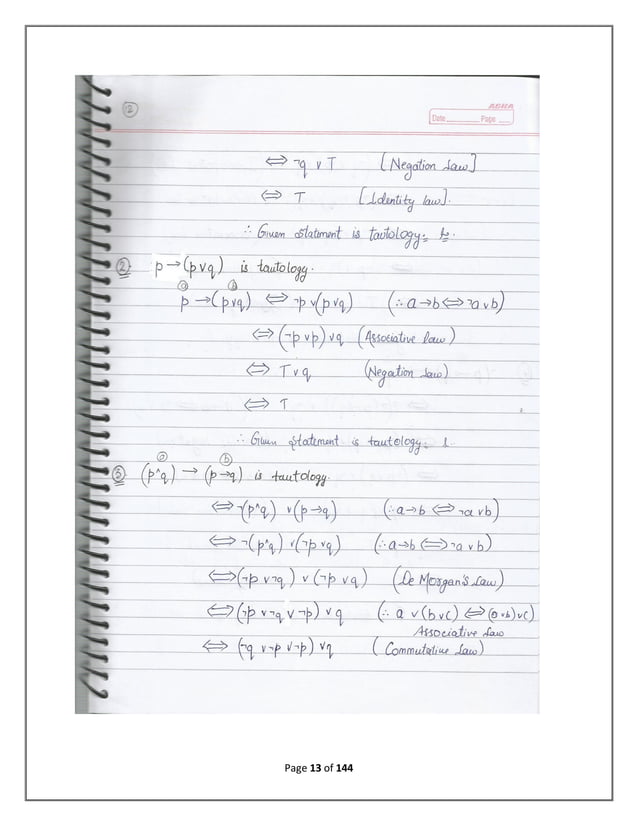 ASHA
②
Date Page
⇔ ¬q ∨ T [Negation Law]
⇔ T [Identity law].
∴ Given statement is tautology.
② p → (p ∨ q) is tautology.
ⓐ ⓑ
p → (p ∨ q) ⇔ ¬p ∨ (p ∨ q) (∴ a → b ⇔ ¬a ∨ b)
⇔ (¬p ∨ p) ∨ q (Associative law)
⇔ T ∨ q (Negation Law)
⇔ T
∴ Given statement is tautology.
ⓐ ⓑ
③ (p ^ q) → (p → q) is tautology.
⇔ ¬(p ^ q) ∨ (p → q) (∴ a → b ⇔ ¬a ∨ b)
⇔ ¬(p ^ q) ∨ (¬p ∨ q) (∴ a → b ⇔ ¬a ∨ b)
⇔ (¬p ∨ ¬q) ∨ (¬p ∨ q) (De Morgan's Law)
⇔ (¬p ∨ ¬q ∨ ¬p) ∨ q (∴ a ∨ (b ∨ c) ⇔ (a ∨ b) ∨ c)
Associative Law
⇔ (¬q ∨ ¬p ∨ ¬p) ∨ q (Commutative Law)
Page 13 of 144